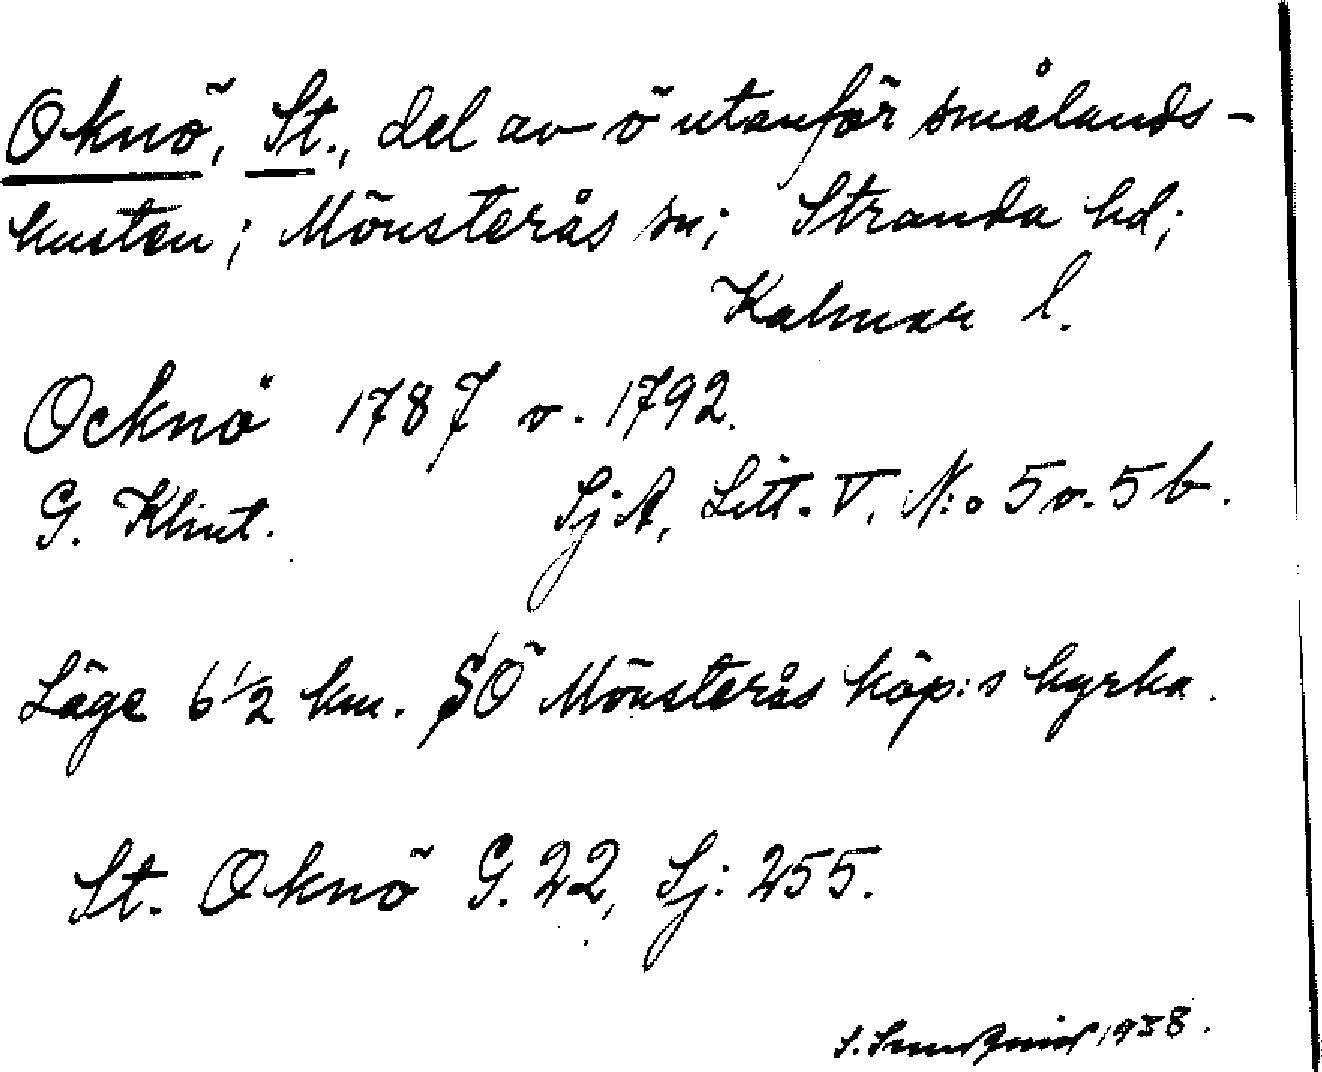 Oknö, St., del av ö utanför smålands-
kusten; Mönsterås sn; Stranda hd;
Kalmar l.
Ocknö 1787 o. 1792.
G. Klint. SjA, Litt. V, N:o 5 o. 5 b.
Läge 6 1/2 km. SO Mönsterås köp:s kyrka.
St. Oknö G. 22, Sj: 255.
S. 1938.